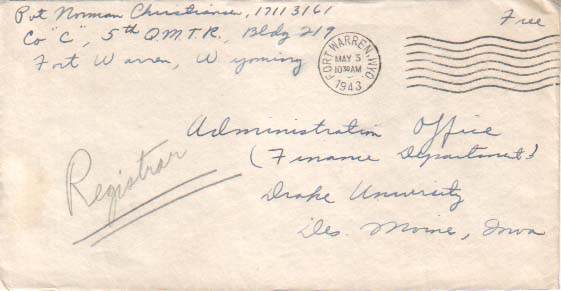 Pvt Norman Christianson, 17113161
Co "C", 5th Q.M.T.R., Bldg 219
Fort Warren, Wyoming
Free
FORT WARREN, WYO.
MAY 3
10 30 AM
1943
Administration Office
(Finance Department)
Drake University
Des. Moines, Iowa
Registrar